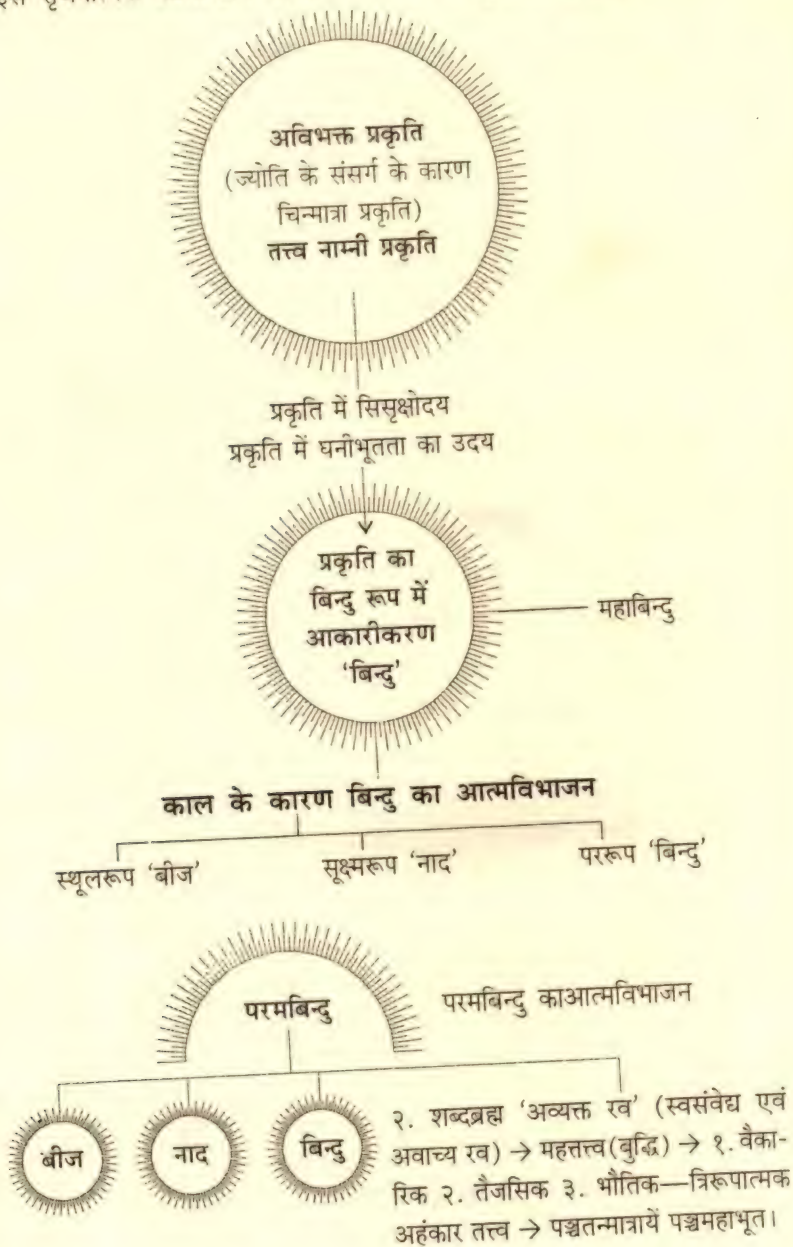 अविभक्त प्रकृति
(ज्योति के संसर्ग के कारण
चिन्मात्रा प्रकृति)
तत्त्व नाम्नी प्रकृति
प्रकृति में सिसृक्षोदय
प्रकृति में घनीभूतता का उदय
प्रकृति का
बिन्दु रूप में
आकारीकरण
‘बिन्दु’
महाबिन्दु
काल के कारण बिन्दु का आत्मविभाजन
स्थूलरूप ‘बीज’
सूक्ष्मरूप ‘नाद’
पररूप ‘बिन्दु’
परमबिन्दु
परमबिन्दु काआत्मविभाजन
बीज
नाद
बिन्दु
२. शब्दब्रह्म ‘अव्यक्त रव’ (स्वसंवेद्य एवं
अवाच्य रव) → महत्तत्त्व(बुद्धि) → १. वैका-
रिक २. तैजसिक ३. भौतिक—त्रिरूपात्मक
अहंकार तत्त्व → पञ्चतन्मात्रायें पञ्चमहाभूत।